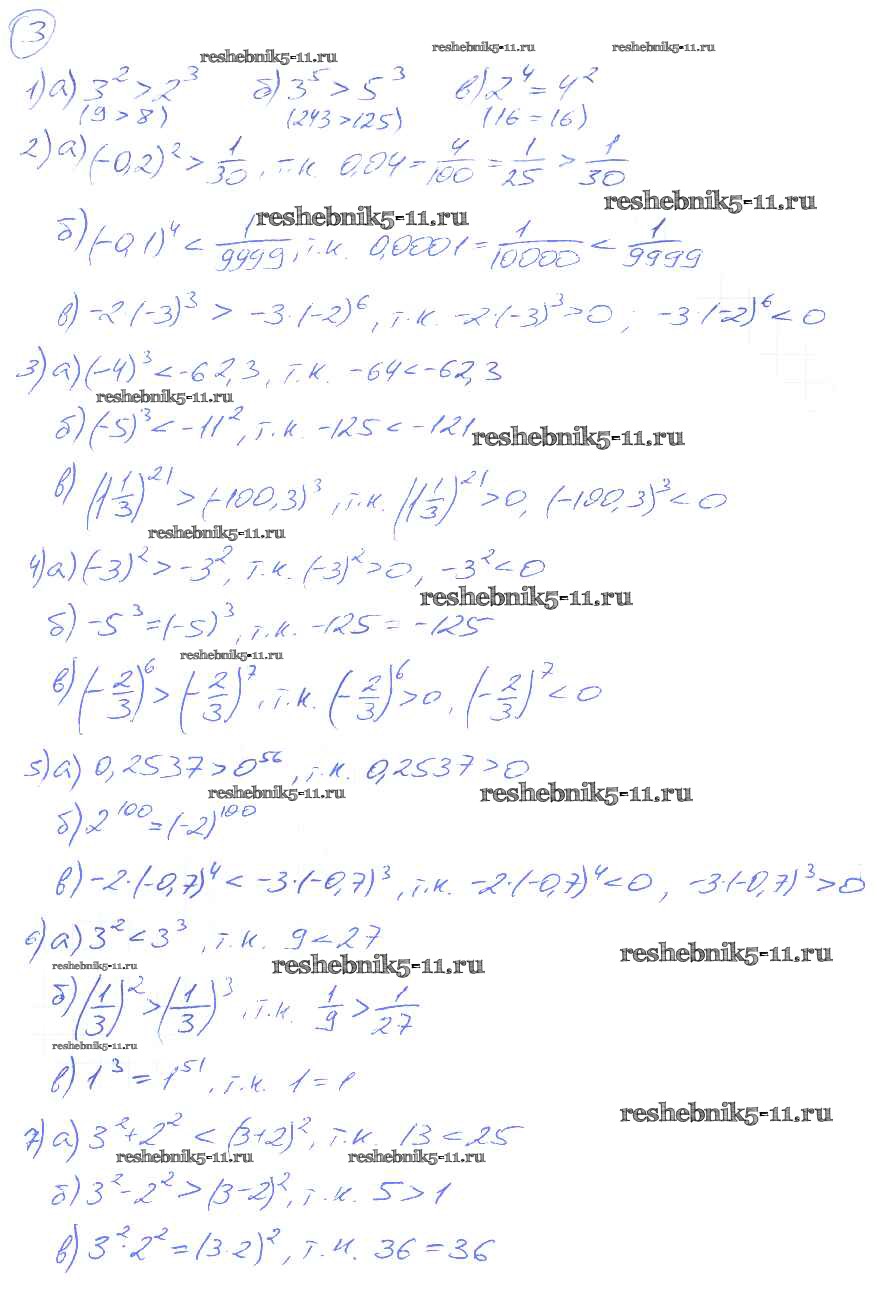 3
reshebnik5-11.ru reshebnik5-11.ru reshebnik5-11.ru
1) а) 3² > 2³ б) 3⁵ > 5³ в) 2⁴ = 4²
(9 > 8) (243 > 125) (16 = 16)
2) а) (-0,2)² > 1/30, т.к. 0,04 = 4/100 = 1/25 > 1/30
reshebnik5-11.ru reshebnik5-11.ru
б) (-0,1)⁴ < 1/9999, т.к. 0,0001 = 1/10000 < 1/9999
в) -2·(-3)³ > -3·(-2)⁶, т.к. -2·(-3)³ > 0; -3·(-2)⁶ < 0
3) а) (-4)³ < -62,3, т.к. -64 < -62,3
reshebnik5-11.ru
б) (-5)³ < -11², т.к. -125 < -121
reshebnik5-11.ru
в) (1 1/3)²¹ > (-100,3)³, т.к. (1 1/3)²¹ > 0, (-100,3)³ < 0
reshebnik5-11.ru
4) а) (-3)² > -3², т.к. (-3)² > 0, -3² < 0
reshebnik5-11.ru
б) -5³ = (-5)³, т.к. -125 = -125
reshebnik5-11.ru
в) (-2/3)⁶ > (-2/3)⁷, т.к. (-2/3)⁶ > 0, (-2/3)⁷ < 0
5) а) 0,2537 > 0⁵⁶, т.к. 0,2537 > 0
reshebnik5-11.ru reshebnik5-11.ru
б) 2¹⁰⁰ = (-2)¹⁰⁰
в) -2·(-0,7)⁴ < -3·(-0,7)³, т.к. -2·(-0,7)⁴ < 0, -3·(-0,7)³ > 0
6) а) 3² < 3³, т.к. 9 < 27
reshebnik5-11.ru reshebnik5-11.ru reshebnik5-11.ru
б) (1/3)² > (1/3)³, т.к. 1/9 > 1/27
reshebnik5-11.ru
в) 1³ = 1⁵¹, т.к. 1 = 1
reshebnik5-11.ru
7) а) 3² + 2² < (3+2)², т.к. 13 < 25
reshebnik5-11.ru reshebnik5-11.ru
б) 3² - 2² > (3-2)², т.к. 5 > 1
в) 3² · 2² = (3·2)², т.к. 36 = 36